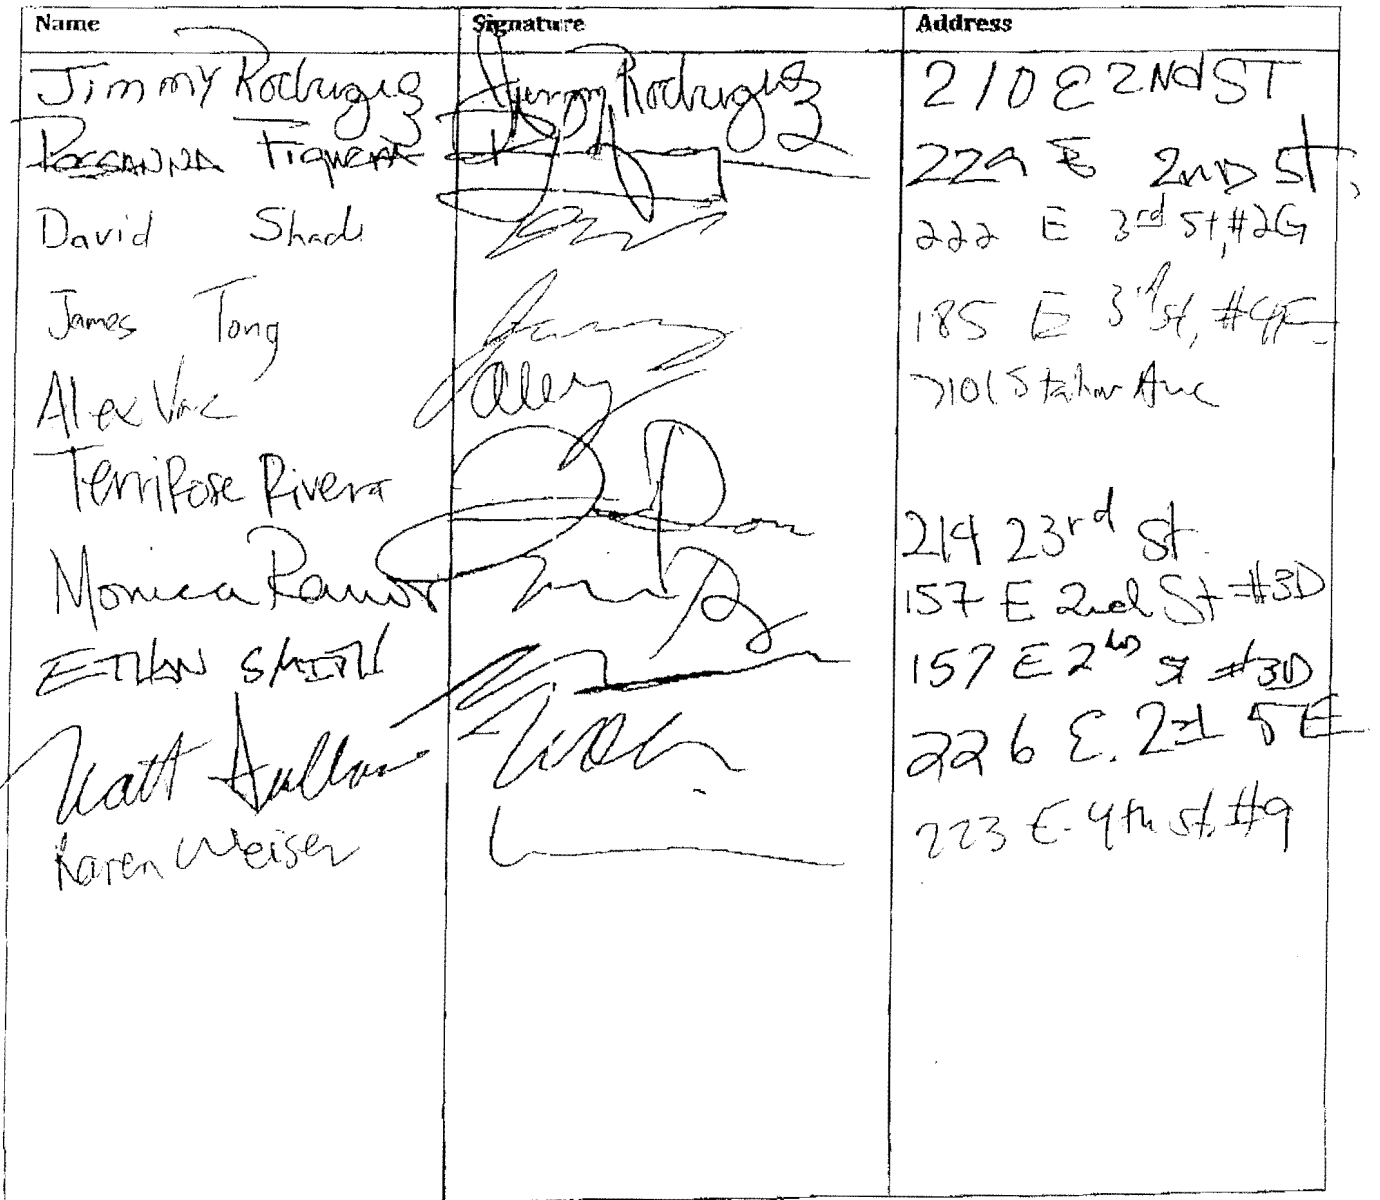 Name Signature Address
Jimmy Rodriguez Jimmy Rodriguez 210 E 2Nd ST
Rossanna Figuera 229 E 2ND ST,
David Shad 222 E 3rd St, #2G
James Tong 185 E 3rd St, #4F
Alex Alex Ave
TerriRose Rivera
214 23rd St.
Monica Ramos 157 E 2nd St #3D
ETHAN SMITH 157 E 2ND St #3D
Matt 226 E. 2nd 5E
Karen Weiser 223 E. 4th St. #9